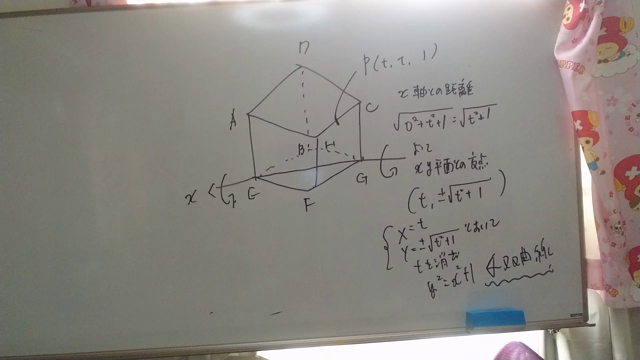 D
P(t, t, 1)
A
C
B
H
E
F
G
x
x軸との距離
√0²+t²+1 = √t²+1
よって
xy平面との交点
(t, ±√t²+1)
{ X=t
Y=±√t²+1 とおいて
tを消去
y²=x²+1 ← 双曲線